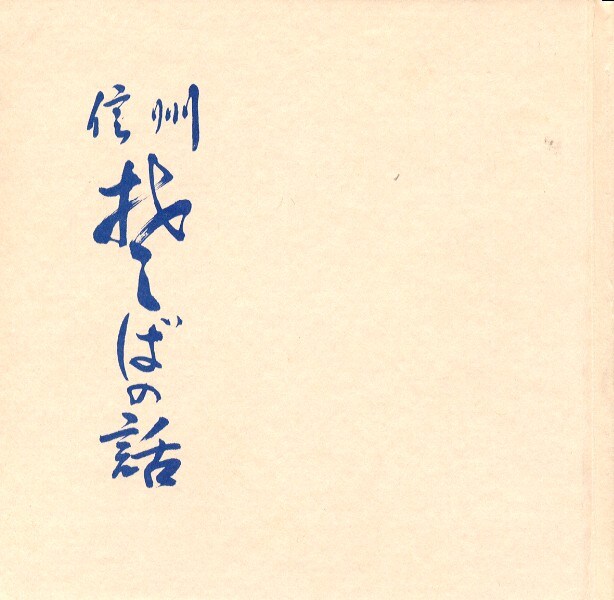 信州
おそばの話